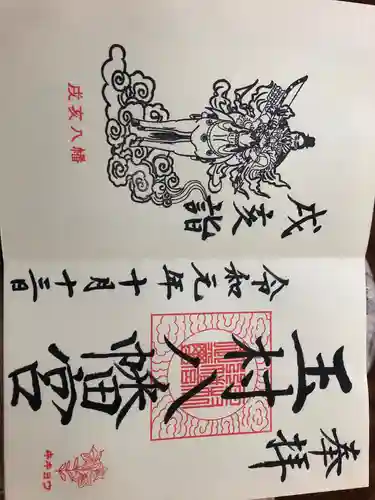 奉拝
玉村八幡宮
令和元年十月十三日
戌亥詣
戌亥八幡
キキョウ